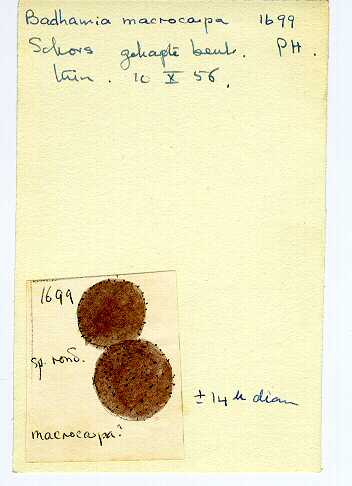 Badhamia macrocarpa 1699
Schors gehapte beuk. PH.
tuin. 10 X 56.
1699
sp. rond.
± 14 µ diam
macrocarpa?